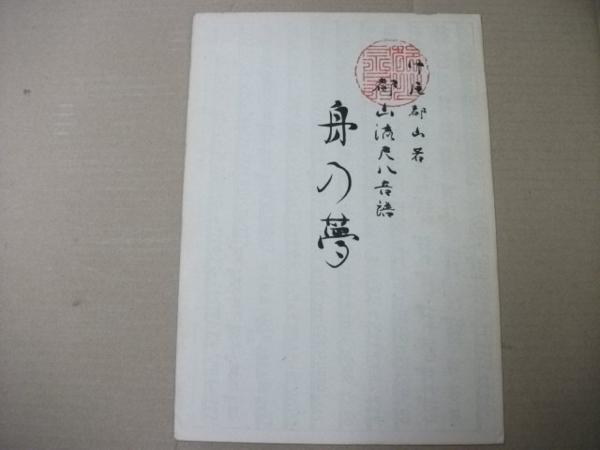 竹庵都山著
都山流尺八音譜
舟の夢